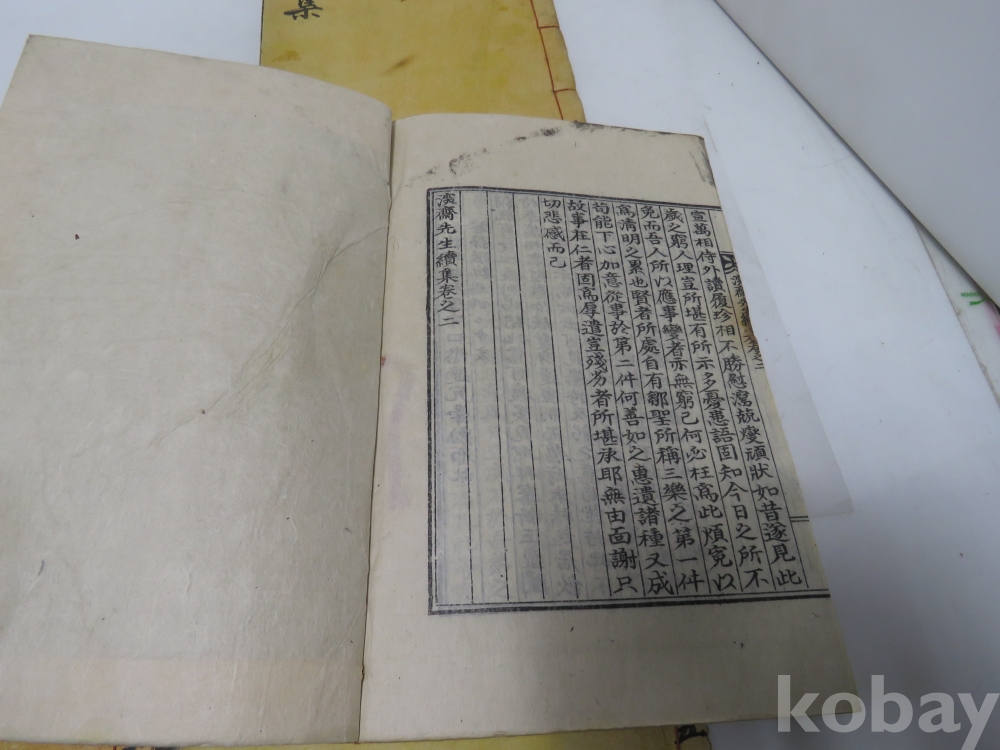 集
宣萬相侍外讀履珍相不勝慰瀉兢瘦頑狀如昔遂見此
歲之窮人理豈所堪有所示多憂患語固知今日之所不
免而吾人所以應事變者亦無窮已何必枉爲此煩寃以
爲淸明之累也賢者所處自有鄒聖所稱三樂之第一件
苟能下心加意從事於第二件何善如之惠遺諸種又成
故事在仁者固爲厚遺豈殘劣者所堪承耶無由面謝只
切悲感而已
溪齋先生續集卷之二
kobay